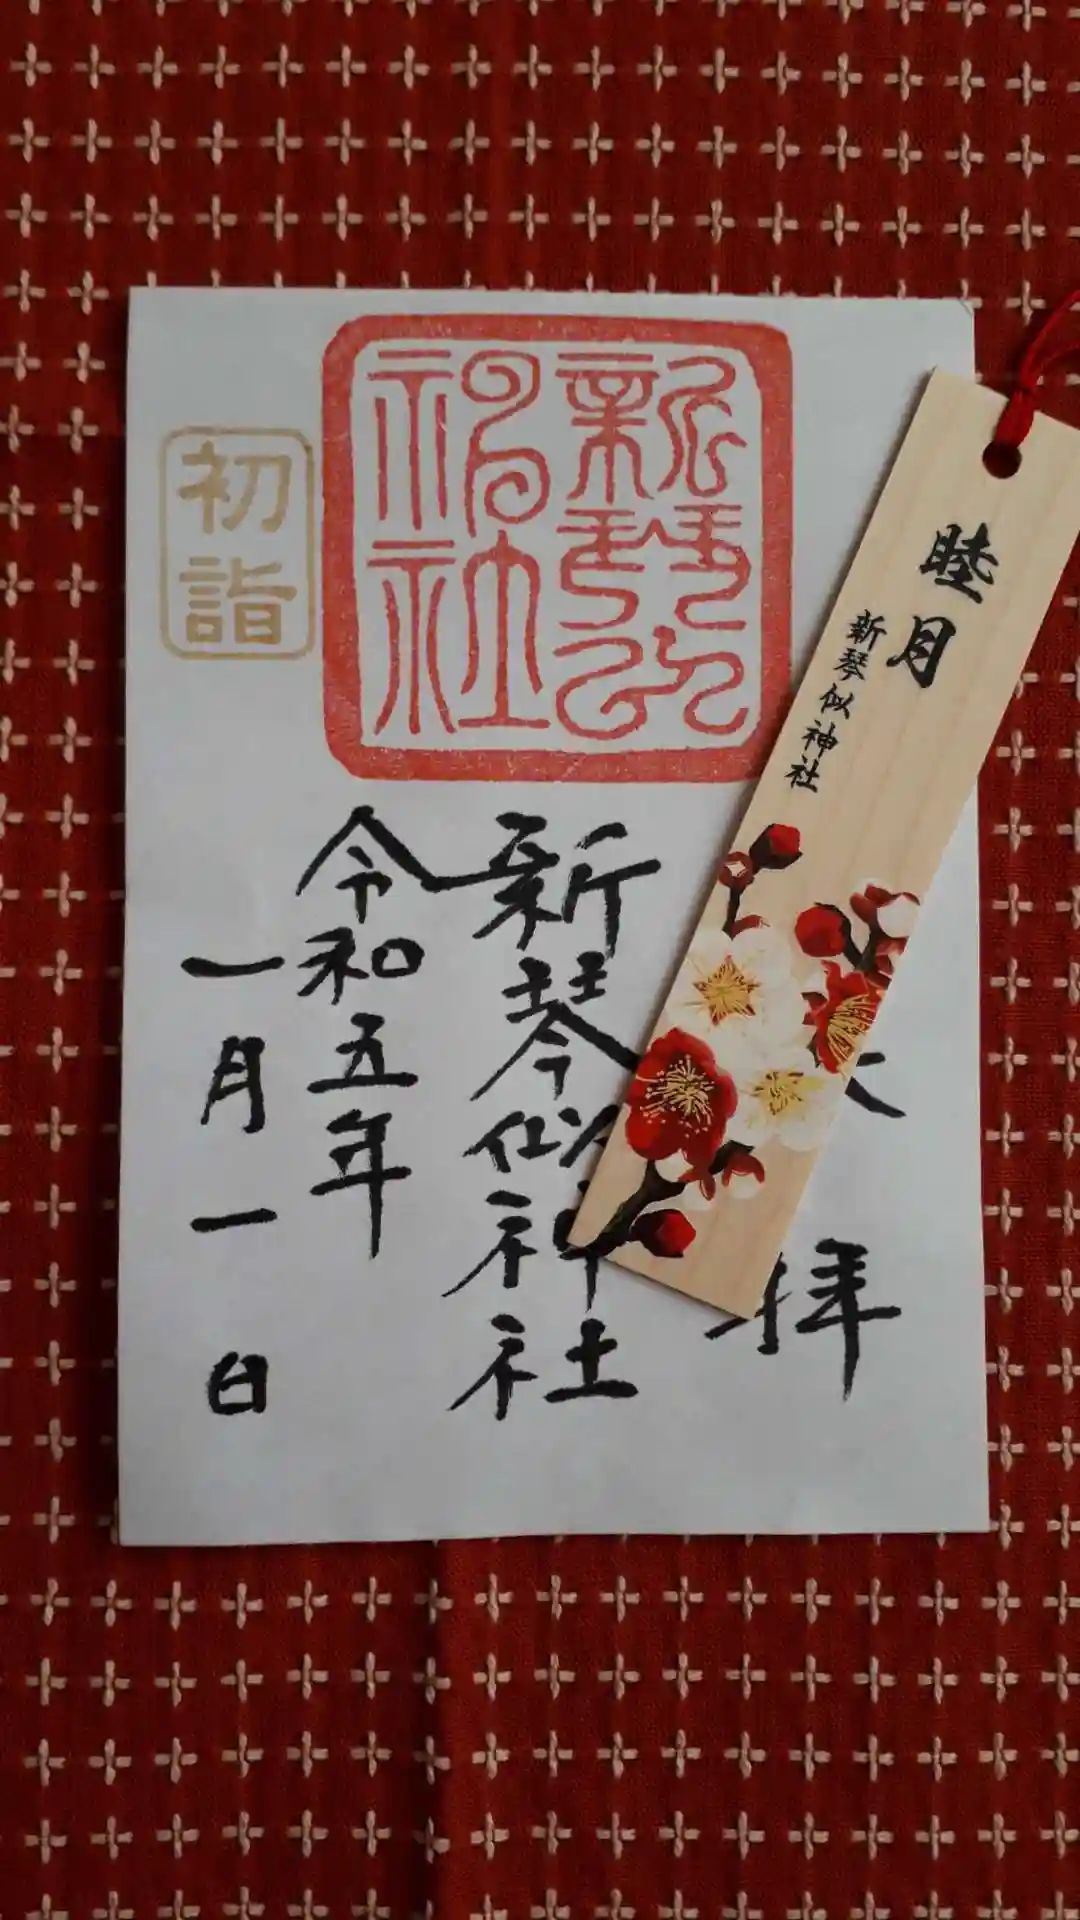 睦月
新琴似神社
新琴似
神社
初詣
拝
新琴似神社
令和五年
一月一日